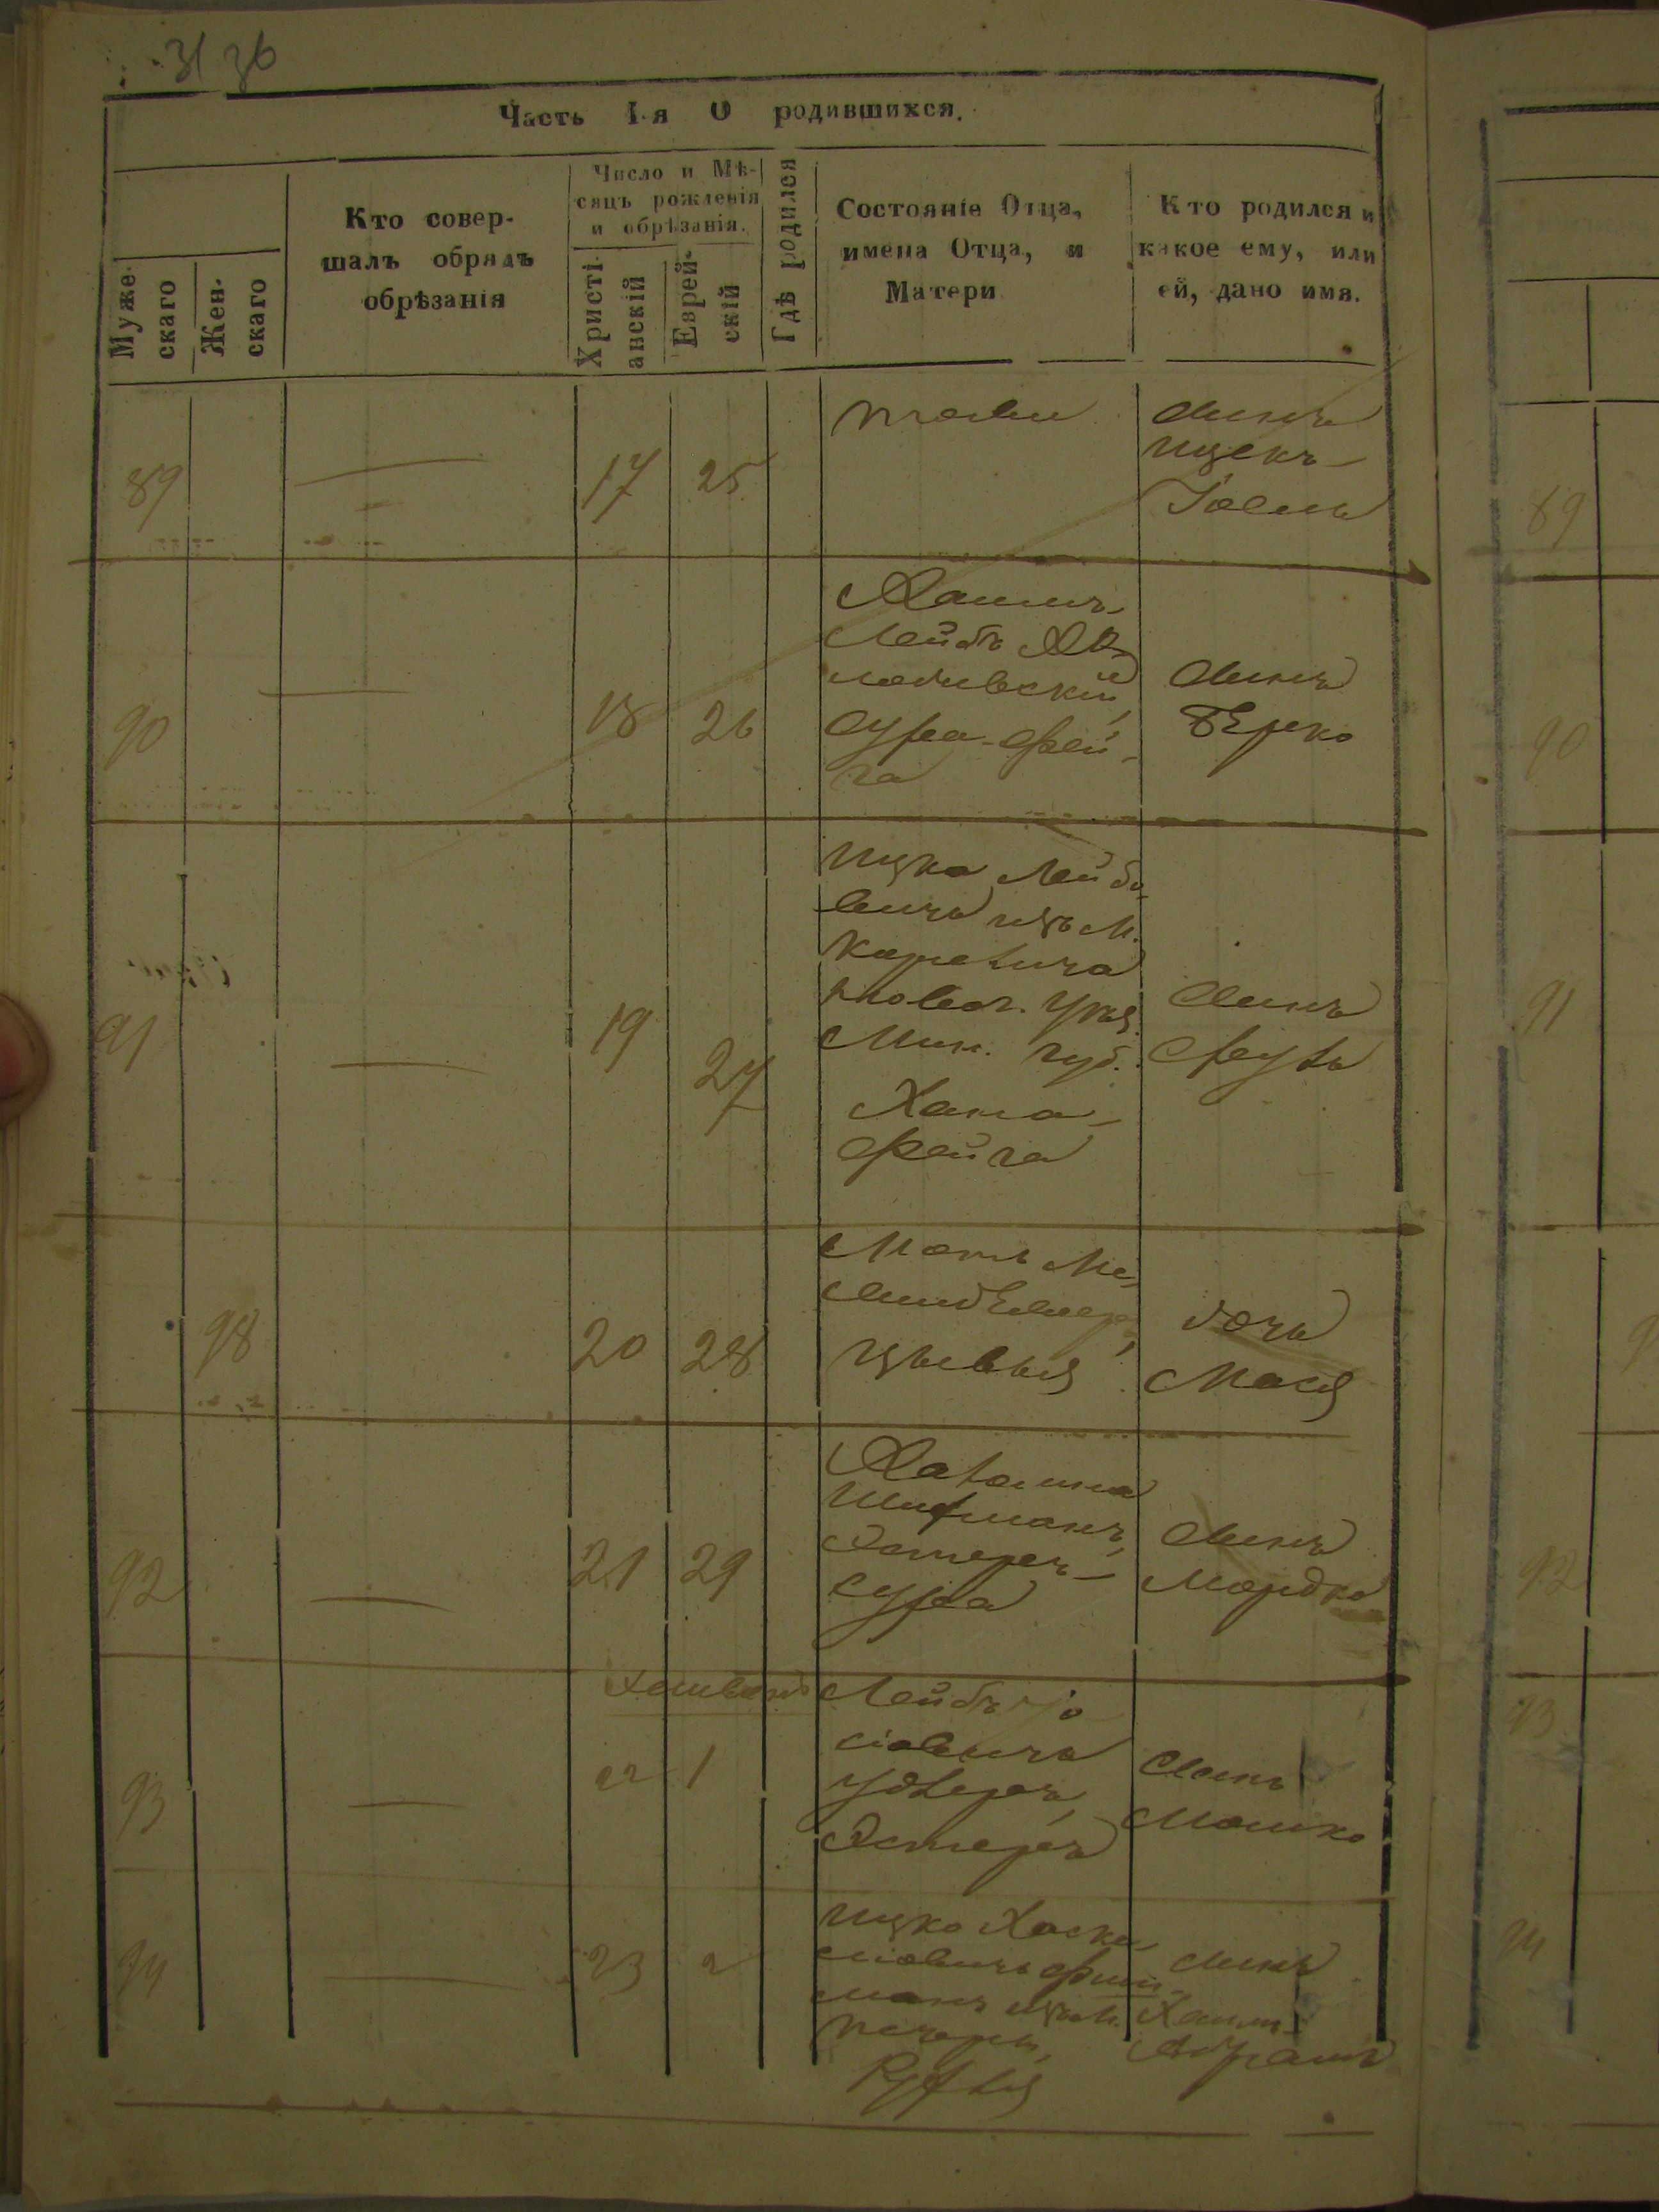 31 36
Часть I-я О родившихся.
Муже-
скаго
Жен-
скаго
Кто совер-
шалъ обрядъ
обрѣзанія
Число и Мѣ-
сяцъ рожденія
и обрѣзанія.
Христі-
анскій
Еврей-
скій
Гдѣ родился
Состояніе Отца,
имена Отца, и
Матери
Кто родился и
какое ему, или
ей, дано имя.
89
17
25
сынъ
Ицекъ-
Іосль
90
18
26
Хаимъ-
Лейбъ
Сура-Фей-
га
сынъ
Берко
91
19
27
Ицко Лейбо-
вичъ изъ М.
уѣз.
Мин. губ.
Хана-
Фейга
сынъ
98
20
28
Цывья
дочь
Мася
92
21
29
Шифманъ,
Эстеръ-
Сура
сынъ
Мордко
93
22
1
Лейбъ Іо
сіовичъ
Эстеръ
сынъ
Мошко
94
23
2
Ицко Хаске-
ліовичъ Фиш-
манъ изъ М.
сынъ
Хаимъ-
Абрамъ
89
90
91
92
93
94